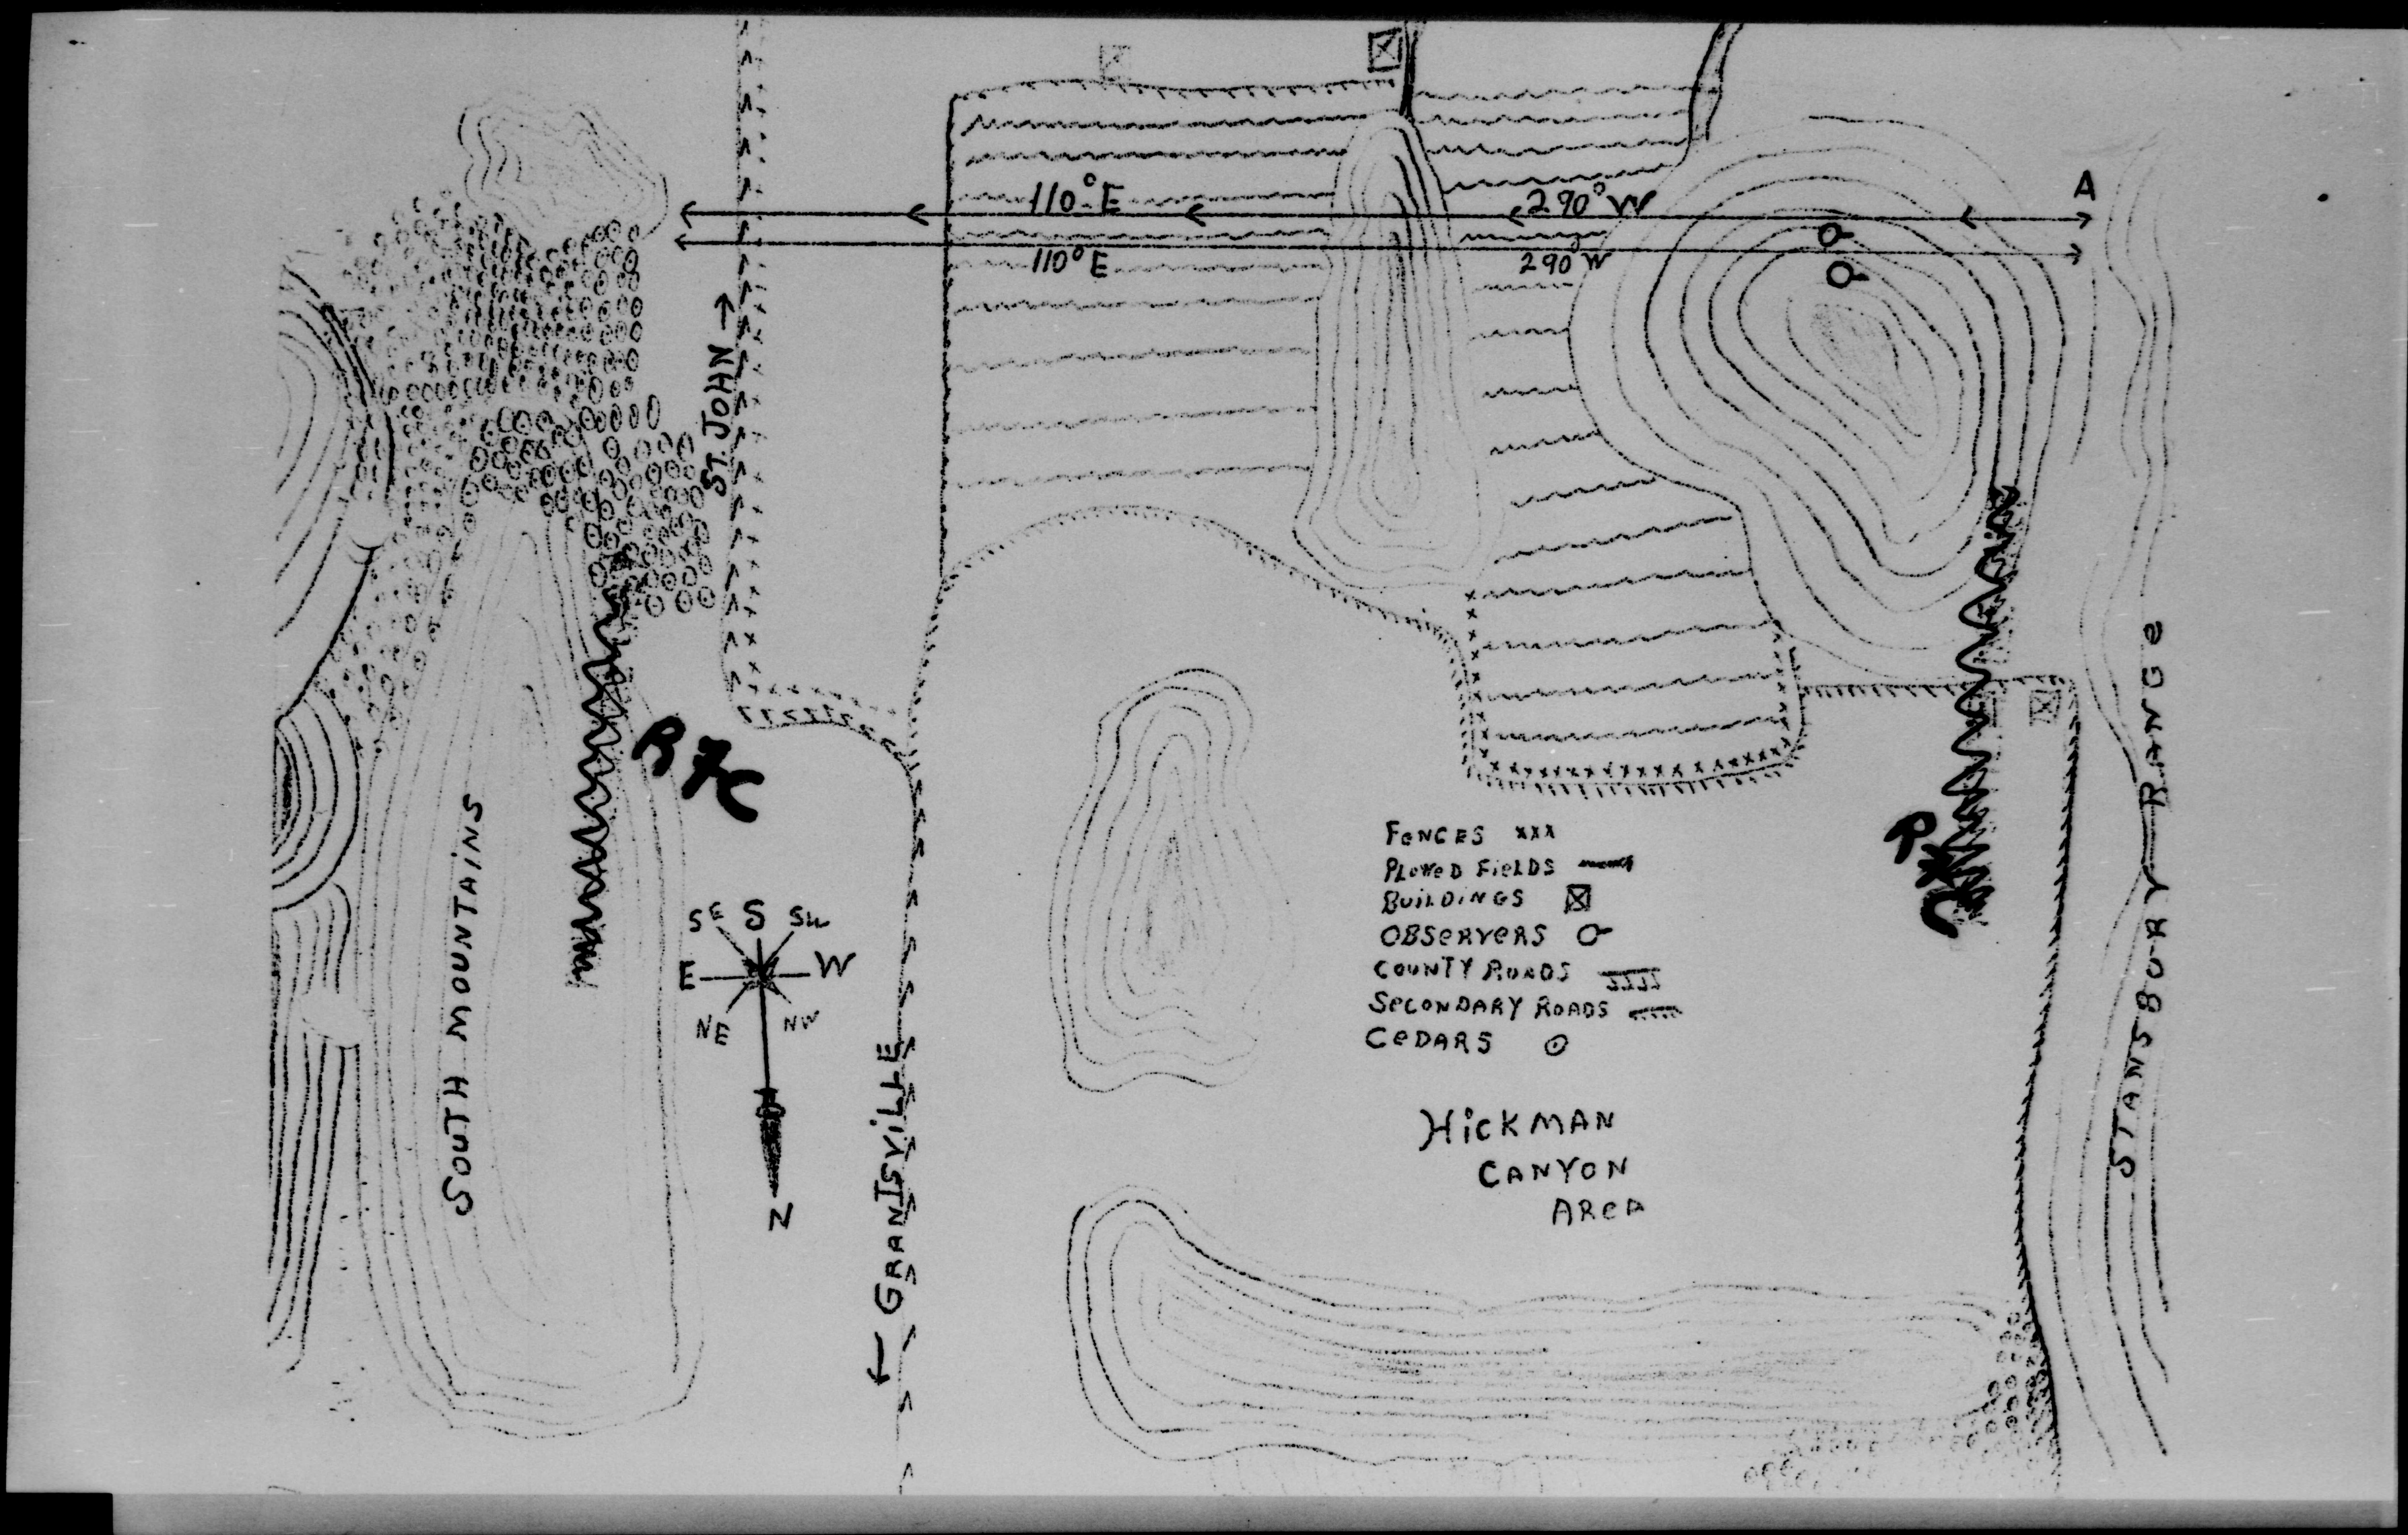 A
110° E
290° W
110° E
290° W
ST. JOHN →
STANSBURY RANGE
SOUTH MOUNTAINS
FENCES xxx
PLOWED FIELDS
BUILDINGS
OBSERVERS
COUNTY ROADS
SECONDARY ROADS
CEDARS
SE S SW
E W
NE NW
N
← GRANTSVILLE
HICKMAN
CANYON
AREA